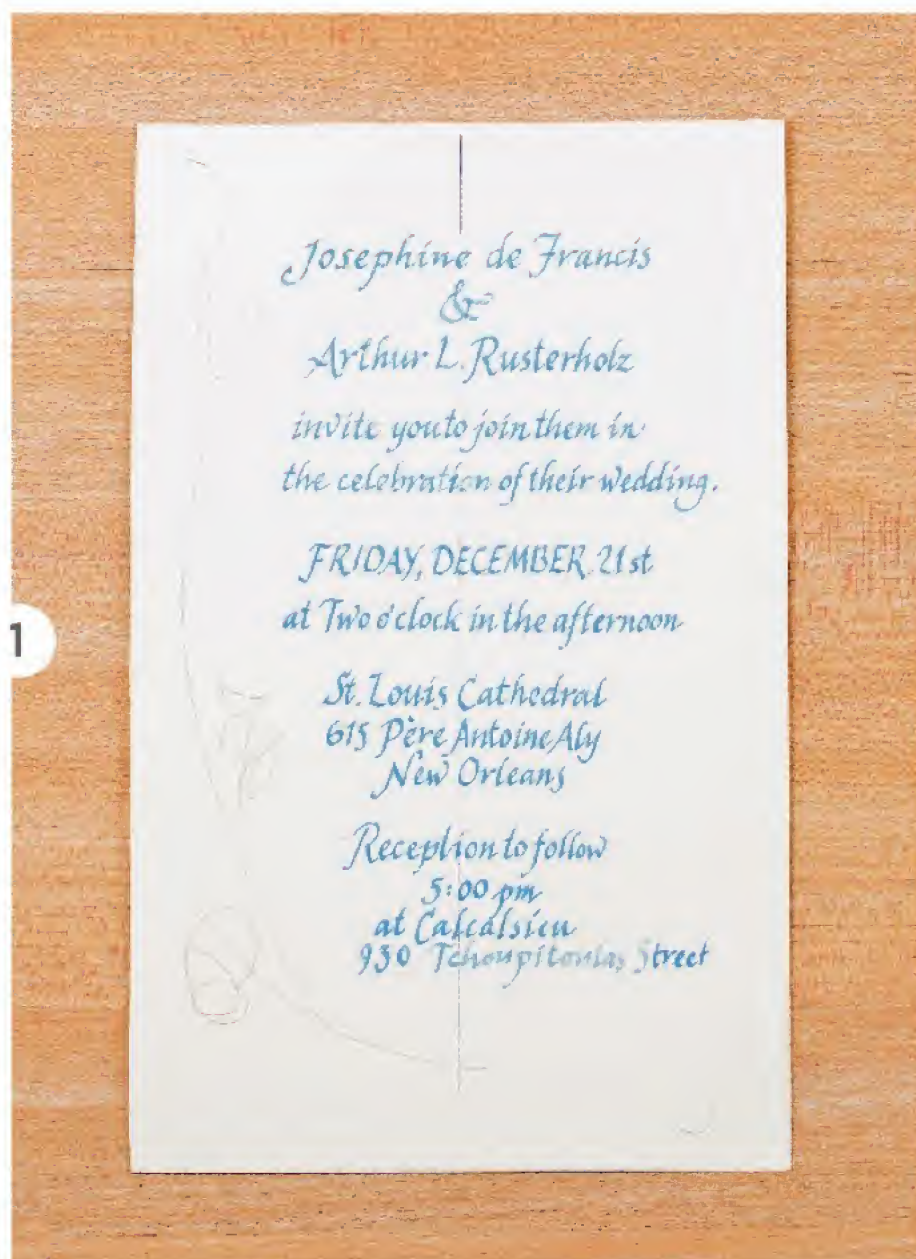 Josephine de Francis
&
Arthur L. Rusterholz
invite you to join them in
the celebration of their wedding.
FRIDAY, DECEMBER 21st
at Two o'clock in the afternoon
1
St. Louis Cathedral
615 Père Antoine Aly
New Orleans
Reception to follow
5:00 pm
at Calcalsieu
930 Tchoupitoulas Street